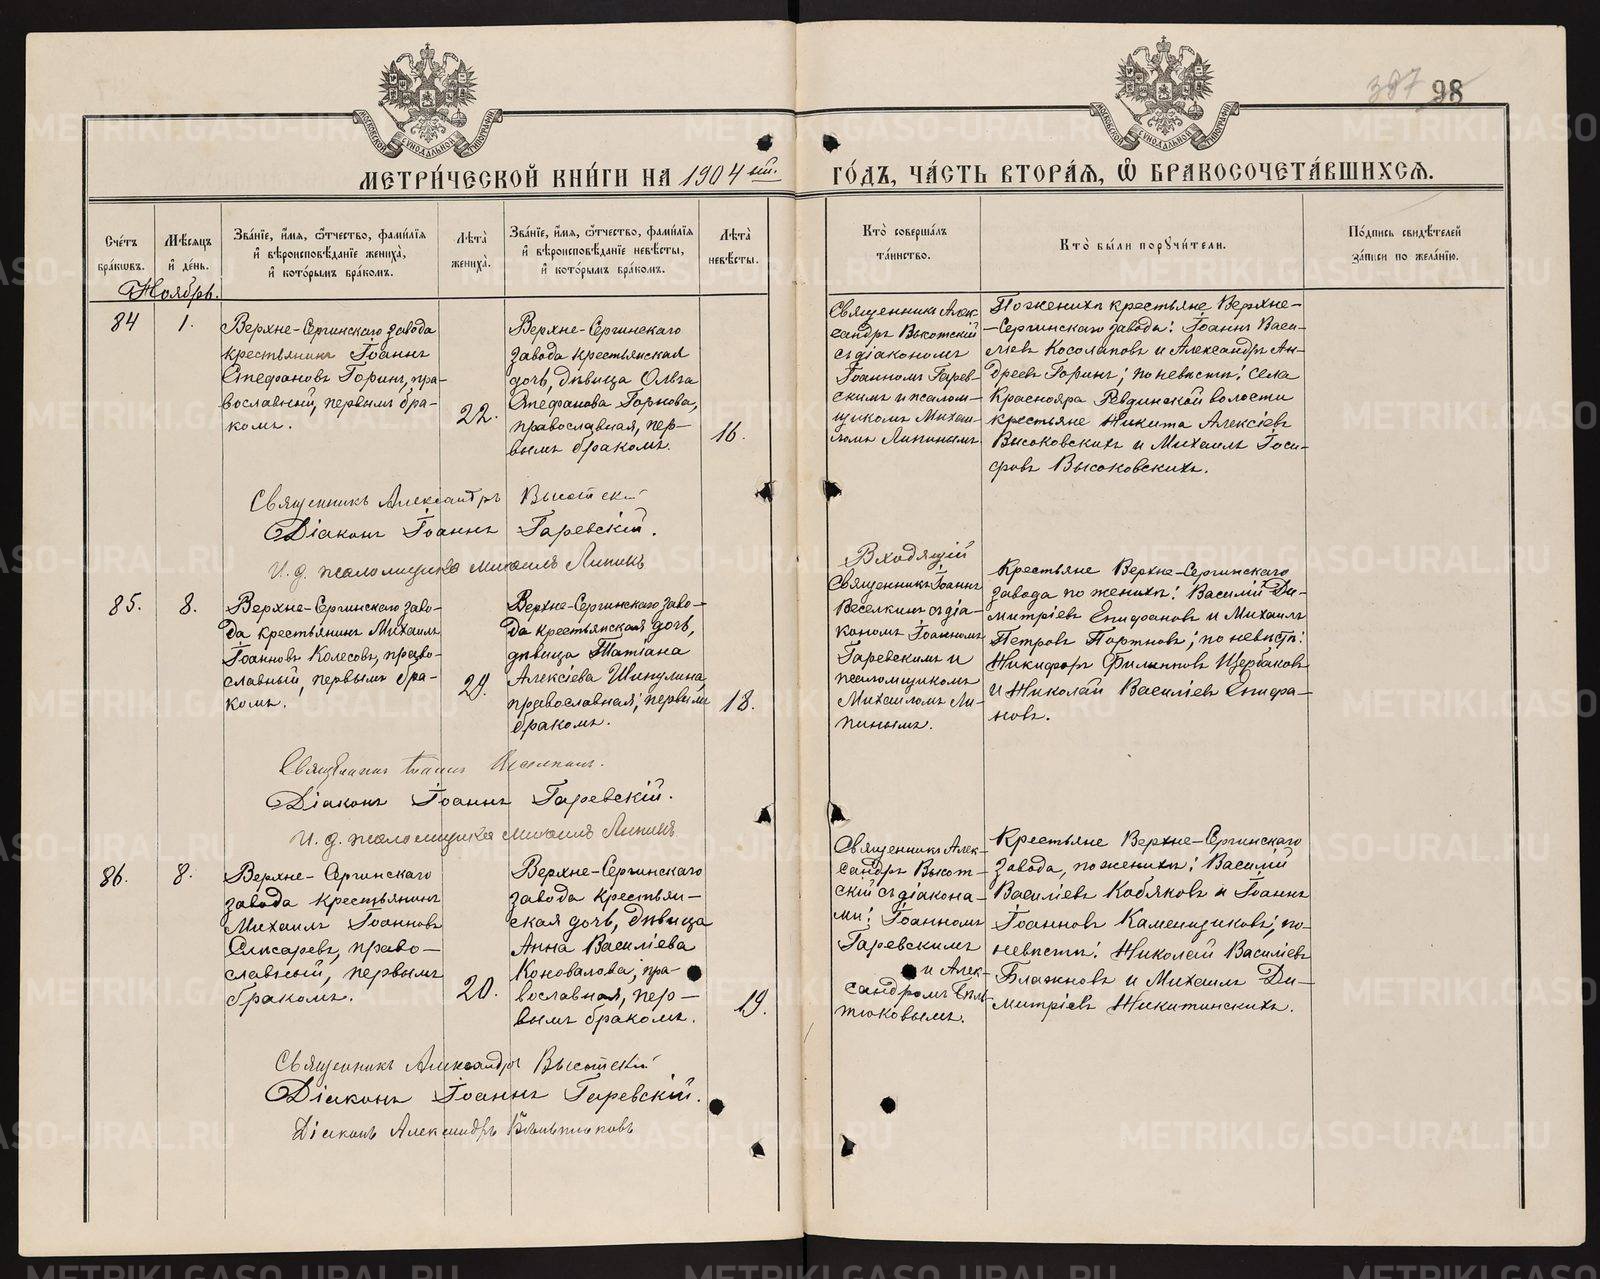 387 98
МОСКОВСКОЙ СѴНОДАЛЬНОЙ ТИПОГРАФІИ
МОСКОВСКОЙ СѴНОДАЛЬНОЙ ТИПОГРАФІИ
МЕТРИ́ЧЕСКОЙ КНИ́ГИ НА 1904 ый. ГО́ДЪ, ЧА́СТЬ ВТОРА́Я, Ѽ БРАКОСОЧЕТА́ВШИХСЯ.
Сче́тъ бра́кωвъ.
Мѣ́сяцъ и҆ де́нь.
Зва́нїе, и҆́мя, ѻ҆́тчество, фами́лїя
и҆ вѣроисповѣ́данїе жениха̀,
и҆ кото́рымъ бра́комъ.
Лѣта̀ жениха̀.
Зва́нїе, и҆́мя, ѻ҆́тчество, фами́лїя
и҆ вѣроисповѣ́данїе невѣ́сты,
и҆ кото́рымъ бра́комъ.
Лѣта̀ невѣ́сты.
Кто̀ соверша́лъ
та́инство.
Кто̀ бы́ли порꙋчи́тели.
По́дпись свидѣ́телей
за́писи по жела́нїю.
Ноябрь.
84
1.
Верхне-Сергинскаго завода
крестьянинъ Іоаннъ
Стефановъ Горинъ, пра-
вославный, первымъ бра-
комъ.
22.
Верхне-Сергинскаго
завода крестьянская
дочь, дѣвица Ольга
Стефанова Горнова,
православная, пер-
вымъ бракомъ.
16.
Священникъ Алек-
сандръ Высотскій
съ діакономъ
Іоанномъ Гарев-
скимъ и псалом-
щикомъ Михаи-
ломъ Липинымъ
По женихѣ крестьяне Верхне-
-Сергинскаго завода: Іоаннъ Васи-
ліевъ Косолаповъ и Александръ Ан-
дреевъ Горинъ; по невѣстѣ: села
Краснояра Ревдинской волости
крестьяне Никита Алексіевъ
Высоковскихъ и Михаилъ Іоси-
фовъ Высоковскихъ.
Священникъ Александръ Высотскій
Діаконъ Іоаннъ Гаревскій.
И. д. псаломщика Михаилъ Липинъ
85.
8.
Верхне-Сергинскаго заво-
да крестьянинъ Михаилъ
Іоанновъ Колесовъ, право-
славный, первымъ бра-
комъ.
29.
Верхне-Сергинскаго заво-
да крестьянская дочь,
дѣвица Татіана
Алексіева Шипулина,
православная; первымъ
бракомъ.
18.
Входящій
Священникъ Іоаннъ
Веселкинъ съ діа-
кономъ Іоанномъ
Гаревскимъ и
псаломщикомъ
Михаиломъ Ли-
пинымъ.
Крестьяне Верхне-Сергинскаго
завода по женихѣ: Василій Ди-
митріевъ Епифановъ и Михаилъ
Петровъ Портновъ; по невѣстѣ:
Никифоръ Филипповъ Щербаковъ
и Николай Василіевъ Епифа-
новъ.
Священникъ Іоаннъ Веселкинъ.
Діаконъ Іоаннъ Гаревскій.
И. д. псаломщика Михаилъ Липинъ
86.
8.
Верхне-Сергинскаго
завода крестьянинъ
Михаилъ Іоанновъ
Елисаревъ, право-
славный, первымъ
бракомъ.
20.
Верхне-Сергинскаго
завода крестьян-
ская дочь, дѣвица
Анна Василіева
Коновалова, пра-
вославная, пер-
вымъ бракомъ.
19.
Священникъ Алек-
сандръ Высот-
скій съ діакона-
ми: Іоанномъ
Гаревскимъ
и Алек-
сандромъ
Крестьяне Верхне-Сергинскаго
завода, по женихѣ: Василій
Василіевъ Кобяковъ и Іоаннъ
Іоанновъ Каменщиковъ; по
невѣстѣ: Николай Василіевъ
Блажновъ и Михаилъ Ди-
митріевъ Никитинскихъ.
Священникъ Александръ Высотскій
Діаконъ Іоаннъ Гаревскій.
Діаконъ Александръ